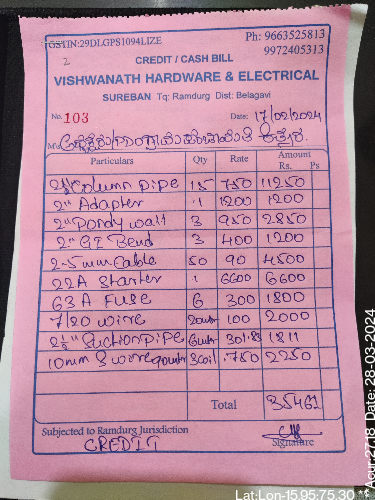 GSTIN:29DLGPS1094L1ZE
Ph: 9663525813
9972405313
2
CREDIT / CASH BILL
VISHWANATH HARDWARE & ELECTRICAL
SUREBAN Tq: Ramdurg Dist: Belagavi
No. 103 Date: 17/02/2024
M/s
Particulars Qty Rate Amount
Rs. Ps
2" Column pipe 15 750 11250
2" Adapter 1 1200 1200
2" 3 950 2850
2" GI Bend 3 400 1200
2-5mm Cable 50 90 4500
22A Starter 1 6600 6600
63A Fuse 6 300 1800
7/20 wire 20 100 2000
2½" Suction pipe 6 301.83 1811
10mm 3coil 750 2250
Total 35461
Subjected to Ramdurg Jurisdiction
CREDIT
Signature
Acur:27.18 Date: 28-03-2024
Lat:Lon-15.95:75.30